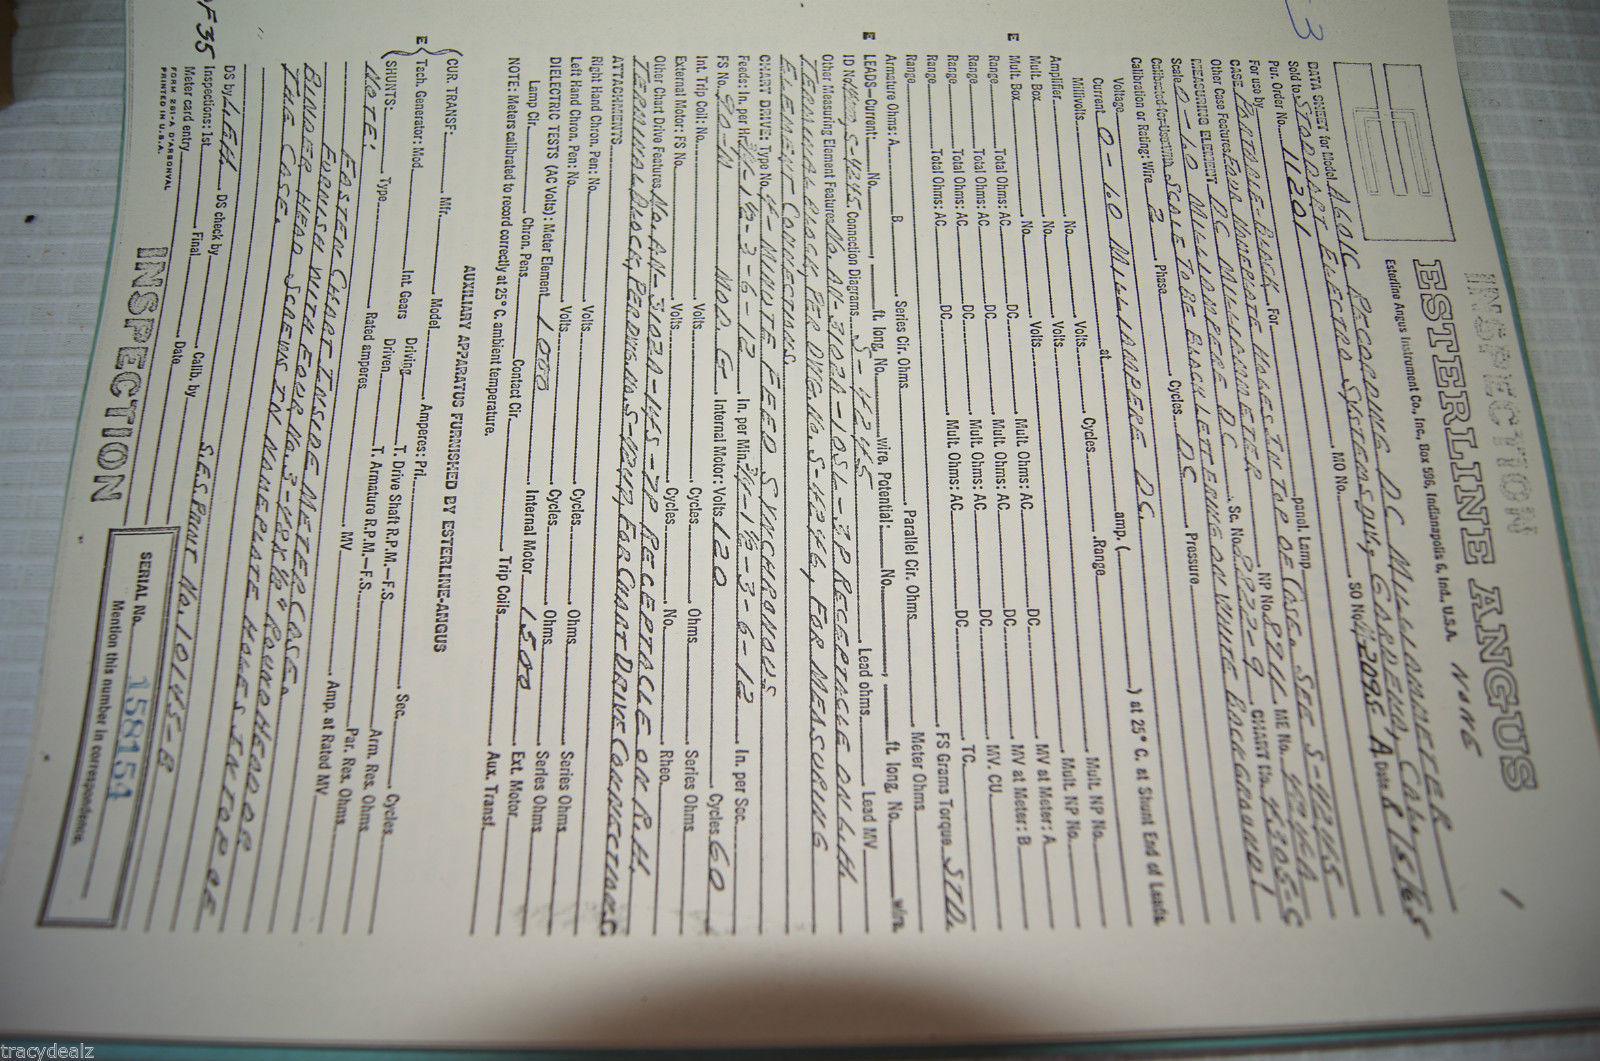 INSPECTION
ESTERLINE ANGUS
Esterline Angus Instrument Co., Inc., Box 596, Indianapolis 6, Ind., U.S.A. NONE
1
-3
DATA SHEET for Model A601C RECORDING DC MILLIAMMETER
Sold to STODDART ELECTRO SYSTEMS DIV., GARDENA, CALIF.
Pur. Order No. 11201 MO No. SO No. Date 8/16/65
For use by For panel. Lamp
CASE PORTABLE-BLACK HOLES IN TOP OF CASE. SEE S-4245
Other Case Features FOUR NAMEPLATE NP No. ME No.
MEASURING ELEMENT DC MILLIAMMETER Sc. No. CHART No. 4305-C
Scale 0-1.0 MILLIAMPERE DC
Calibrated for Use with SCALE TO BE BLACK LETTERING ON WHITE BACKGROUND!
Calibration or Rating: Wire 2 Phase Cycles DC Pressure
Voltage at amp. ( ) at 25° C. at Shunt End of Leads
Current 0-1.0 MILLIAMPERE DC.
Millivolts Cycles Range
Amplifier No. Volts Mult. NP No.
Mult. Box No. Volts Mult. NP No.
E Mult. Box No. Volts MV at Meter: A
Range Total Ohms: AC DC Mult. Ohms: AC DC MV at Meter: B
Range Total Ohms: AC DC Mult. Ohms: AC DC MV. CU
Range Total Ohms: AC DC Mult. Ohms: AC DC TC
Range Total Ohms: AC DC Mult. Ohms: AC DC FS Grams Torque STD.
Armature Ohms: A B Series Cir. Ohms Parallel Cir. Ohms Meter Ohms
E LEADS—Current: No. ft. long, No. wire. Potential: No. ft. long, No. wire
ID No. S-4245 Connection Diagrams S-4245 Lead ohms Lead MV
Other Measuring Element Features No. AN-3102A-10SL-3P RECEPTACLE ON L.H.
TERMINAL BLOCK, PER DWG. No. S-4246, FOR MEASURING
ELEMENT CONNECTIONS.
CHART DRIVE: Type No. 4-MINUTE FEED SYNCHRONOUS
Feeds: In. per Hr. 3/4-1 1/2-3-6-12 In. per Min. 3/4-1 1/2-3-6-12 In. per Sec.
FS No. MOD. G Internal Motor: Volts 120 Cycles 60
Int. Trip Coil: No. Volts Cycles Ohms Series Ohms
External Motor: FS No. Volts Cycles No. Rheo.
Other Chart Drive Features No. AN-3102A-14S-7P RECEPTACLE ON R.H.
TERMINAL BLOCK, PER DWG. No. S-4247, FOR CHART DRIVE CONNECTIONS
ATTACHMENTS
Right Hand Chron. Pen: No. Volts Cycles Ohms Series Ohms
Left Hand Chron. Pen: No. Volts Cycles Ohms Series Ohms
DIELECTRIC TESTS (AC Volts): Meter Element 1000 Internal Motor 1500 Ext. Motor
Lamp Cir. Chron. Pens Contact Cir. Trip Coils Aux. Transf.
NOTE: Meters calibrated to record correctly at 25° C. ambient temperature.
AUXILIARY APPARATUS FURNISHED BY ESTERLINE-ANGUS
CUR. TRANSF: Mfr. Model Amperes: Pri. Sec. Cycles
E Tach. Generator: Mod. Int. Gears Driving T. Drive Shaft R.P.M.—F.S. Arm. Res. Ohms
Driven T. Armature R.P.M.—F.S. Par. Res. Ohms
SHUNTS: Type Rated amperes MV Amp. at Rated MV
NOTE:
FASTEN CHART INSIDE METER CASE.
FURNISH WITH FOUR No. 3-48X1/2" ROUND HEAD OR
BINDER HEAD SCREWS IN NAMEPLATE HOLES IN TOP OF
THE CASE.
S.E.S. PRINT No. 10145-B
OF 35
DS by LEH DS check by
Inspections: 1st Final Calib. by
Meter card entry Date
FORM 261-A D'ARSONVAL
PRINTED IN U.S.A.
INSPECTION
SERIAL No. 158154
Mention this number in correspondence.
tracydealz